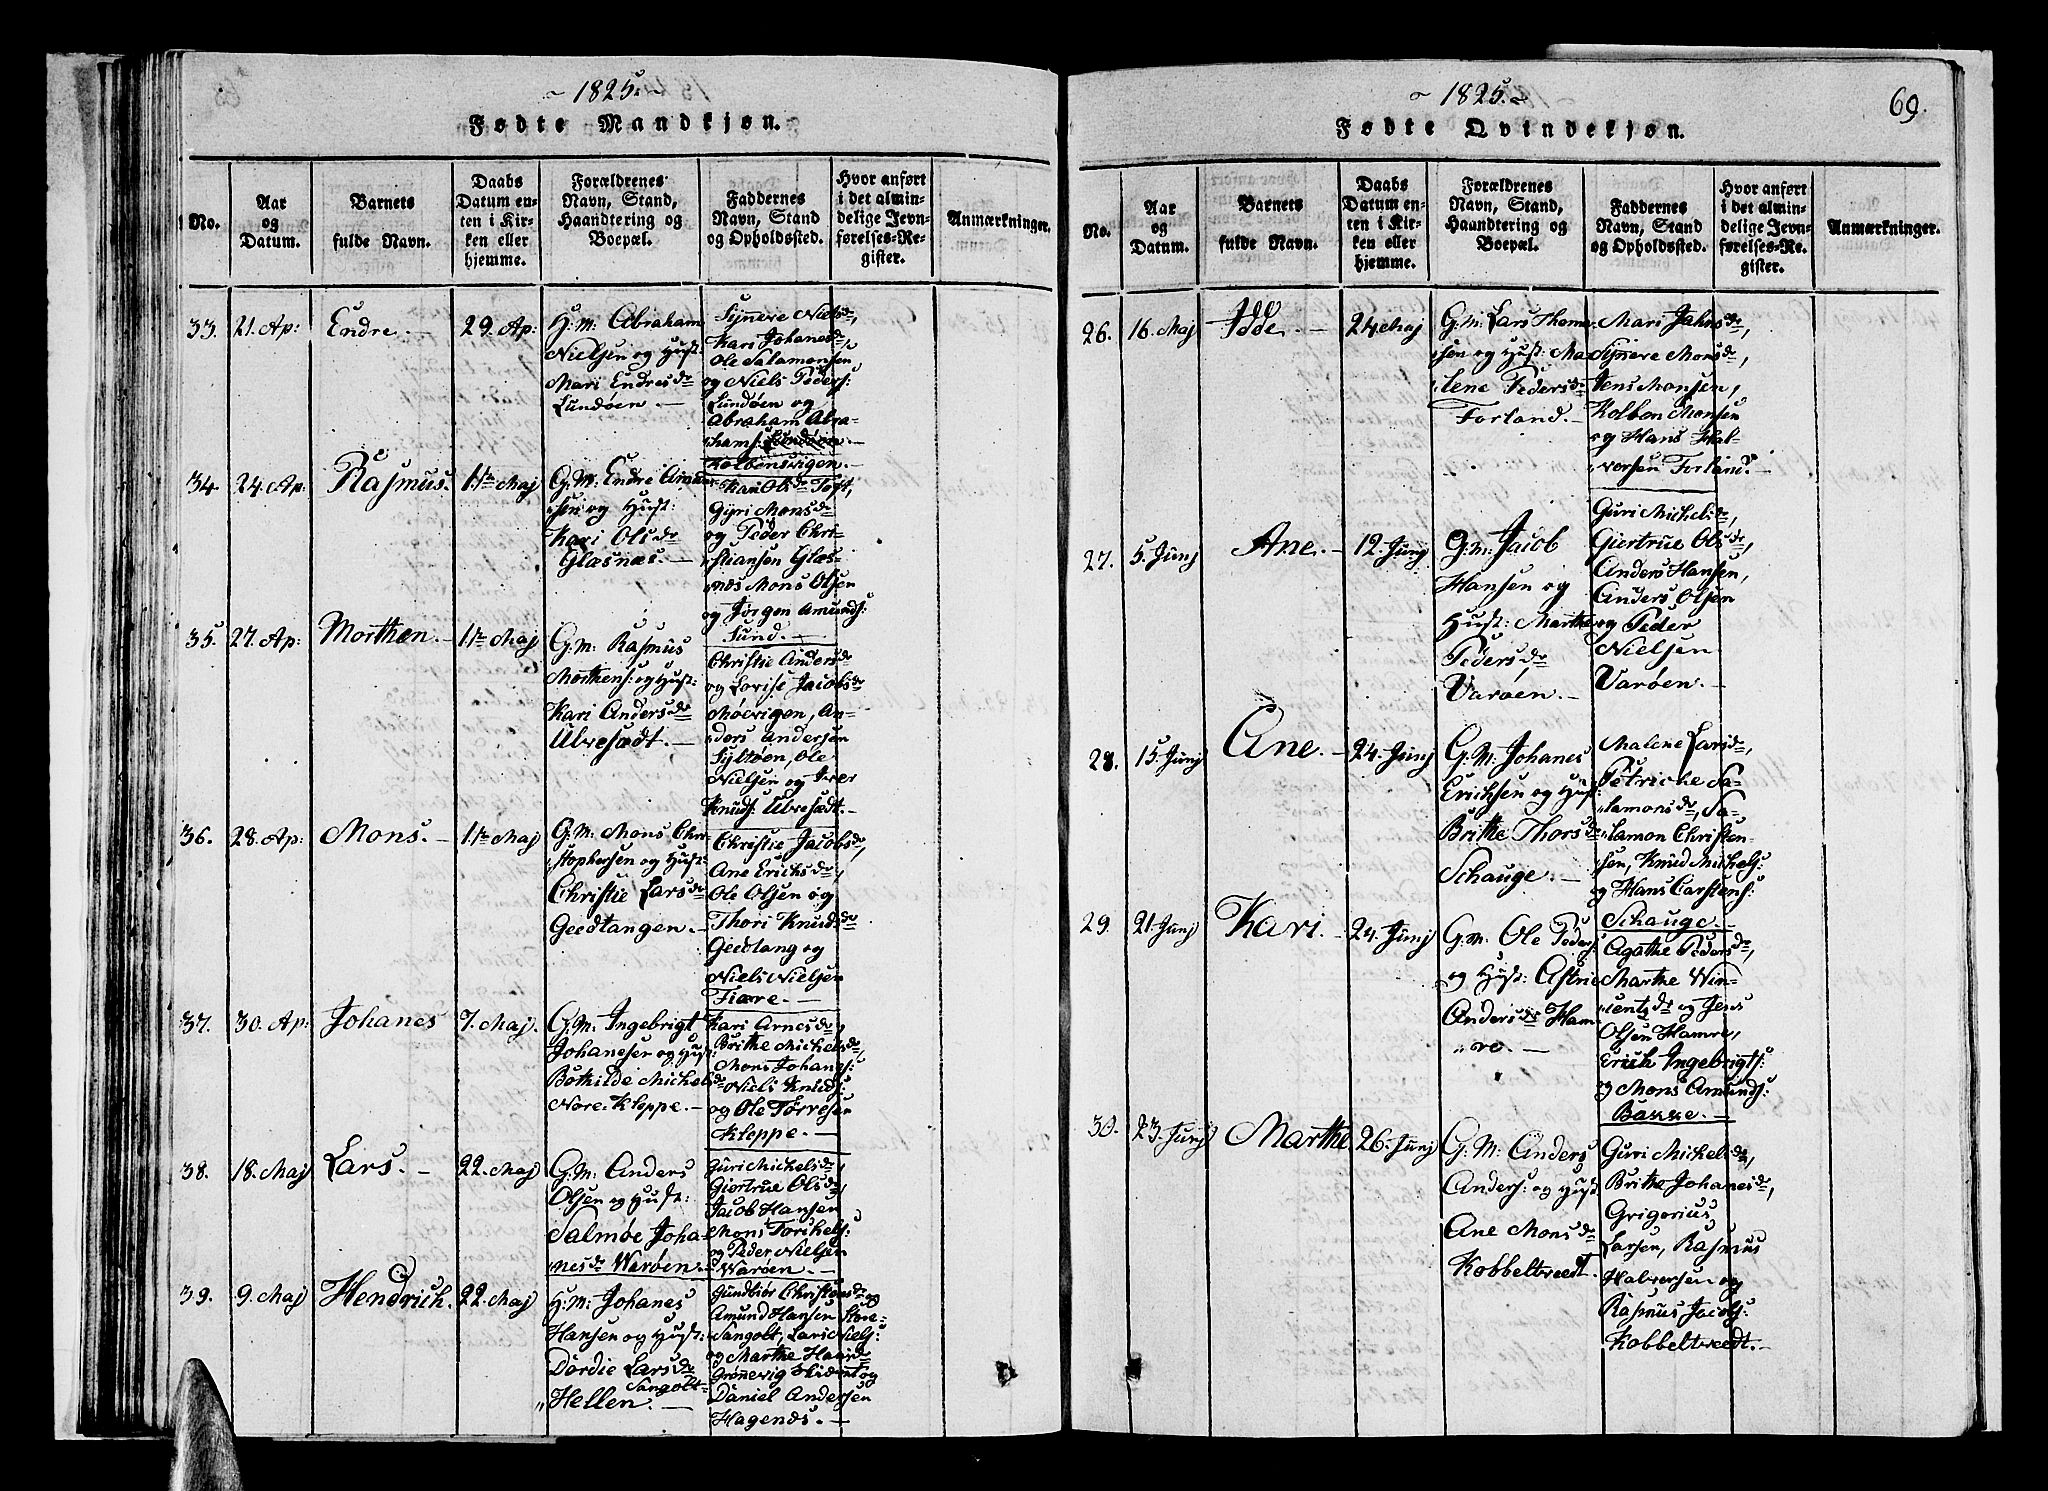 ~ 1825. ~
Fødte Mandkjøn.
No.
Aar
og
Datum.
Barnets
fulde Navn.
Daabs
Datum en-
ten i Kir-
ken eller
hjemme.
Forældrenes
Navn, Stand,
Haandtering og
Boepæl.
Faddernes
Navn, Stand
og Opholdssted.
Hvor anført
i det almin-
delige Jevn-
førelses-Re-
gister.
Anmærkninger.
33. 21. Ap: Endre. 29. Ap:
H.M: Abraham
Nielsen og Hust:
Mari Endresdr
Lundøen
Synnere Nielsdr,
Kari Johanesdr,
Ole Salamonsen
og Niels Peders:
Lundøen og
Abraham Abra-
hams: Lundøen
Kolbensvigen.
34. 24. Ap: Rasmus. 1ste Maj
G.M: Endre Amund-
sen og Hust:
Kari Olsdr
Glæsnæs.
Kari Olsdr Toft,
Gyri Monsdr
og Peder Chri-
stiansen Glæs-
næs Mons Olsen
og Jørgen Amunds:
Sund.
35. 27. Ap: Morthen. 1ste Maj
G.M: Rasmus
Morthens: og Hust:
Kari Andersdr
Ulvesædt.
Christie Andersdr
og Lovise Jacobsdr
Møvigen, An-
ders Andersen
Syltøen, Ole
Nielsen og Iver
Knuds: Ulvesædt.
36. 28. Ap: Mons. 1ste Maj
G.M: Mons Chri-
stophersen og Hust:
Christie Larsdr
Geedtangen.
Christie Jacobsdr,
Ane Erichsdr,
Ole Olsen og
Thori Knudsdr
Geedtang og
Niels Nielsen
Fiære.
37. 30. Ap: Johanes 7. Maj.
G.M: Ingebrigt
Johanesen og Hust:
Bothilde Michelsdr
Nore-Kleppe.
Kari Arnesdr,
Brithe Michelsdr,
Mons Johanes:
Niels Knuds:
og Ole Torresen
Kleppe.
38. 18. Maj Lars. 22. Maj
G.M: Anders
Olsen og Hust:
Salmøe Joha-
nesdr Warøen.
Guri Michelsdr,
Giertrue Olsdr,
Jacob Hansen
Mons Torskels:
og Peder Nielsen
Warøen.
39. 9. Maj Hendrich. 22. Maj
H.M: Johanes
Hansen og Hust:
Dordie Larsdr
Sangolt
Hellen.
Gundbiør Christensdr og
Amund Hansen Store-
Sangolt, Lars Niels:
og Marthe Hansdr
Grønevig
Daniel Andersen
Hagenæs.
~ 1825. ~
69.
Fødte Qvindekjøn.
No.
Aar
og
Datum.
Barnets
fulde Navn.
Daabs
Datum en-
ten i Kir-
ken eller
hjemme.
Forældrenes
Navn, Stand,
Haandtering og
Boepæl.
Faddernes
Navn, Stand
og Opholdssted.
Hvor anført
i det almin-
delige Jevn-
førelses-Re-
gister.
Anmærkninger.
26. 16. Maj Idde. 24. Maj
G.M: Lars Thom-
sen og Hust: Ma-
lene Pedersdr
Forland.
Mari Jahnsdr,
Synnere Monsdr,
Jens Monsen,
Kolben Monsen
og Hans Hal-
vorsen Forland.
27. 5. Junj Ane. 12. Junj
G.M: Jacob
Hansen og
Hust: Marthe
Pedersdr
Varøen.
Guri Michelsdr,
Giertrue Olsdr,
Anders Hansen,
Anders Olsen
og Peder
Nielsen
Varøen.
28. 15. Junj Ane. 24. Junj
G.M: Johanes
Erichsen og Hust:
Brithe Thorsdr
Schauge.
Malene Larsdr,
Petricke Sa-
lamonsdr, Sa-
lamon Christen-
sen, Knud Michels:
og Hans Carstens:
Schauge.
29. 21. Junj Kari. 24. Junj
G.M: Ole Peders:
og Hust: Astrie
Andersdr Ham-
re.
Agathe Pedersdr,
Marthe Win-
sentzdr og Jens
Olsen Hamre,
Erich Ingebrigts:
og Mons Amunds:
Bakke.
30. 23. Junj Marthe. 26. Junj
G.M: Anders
Anders: og Hust
Ane Monsdr
Kobbeltveedt.
Guri Michelsdr,
Brithe Johanesdr,
Grigorius
Larsen, Rasmus
Halversen og
Rasmus Jacobs:
Kobbeltveedt.